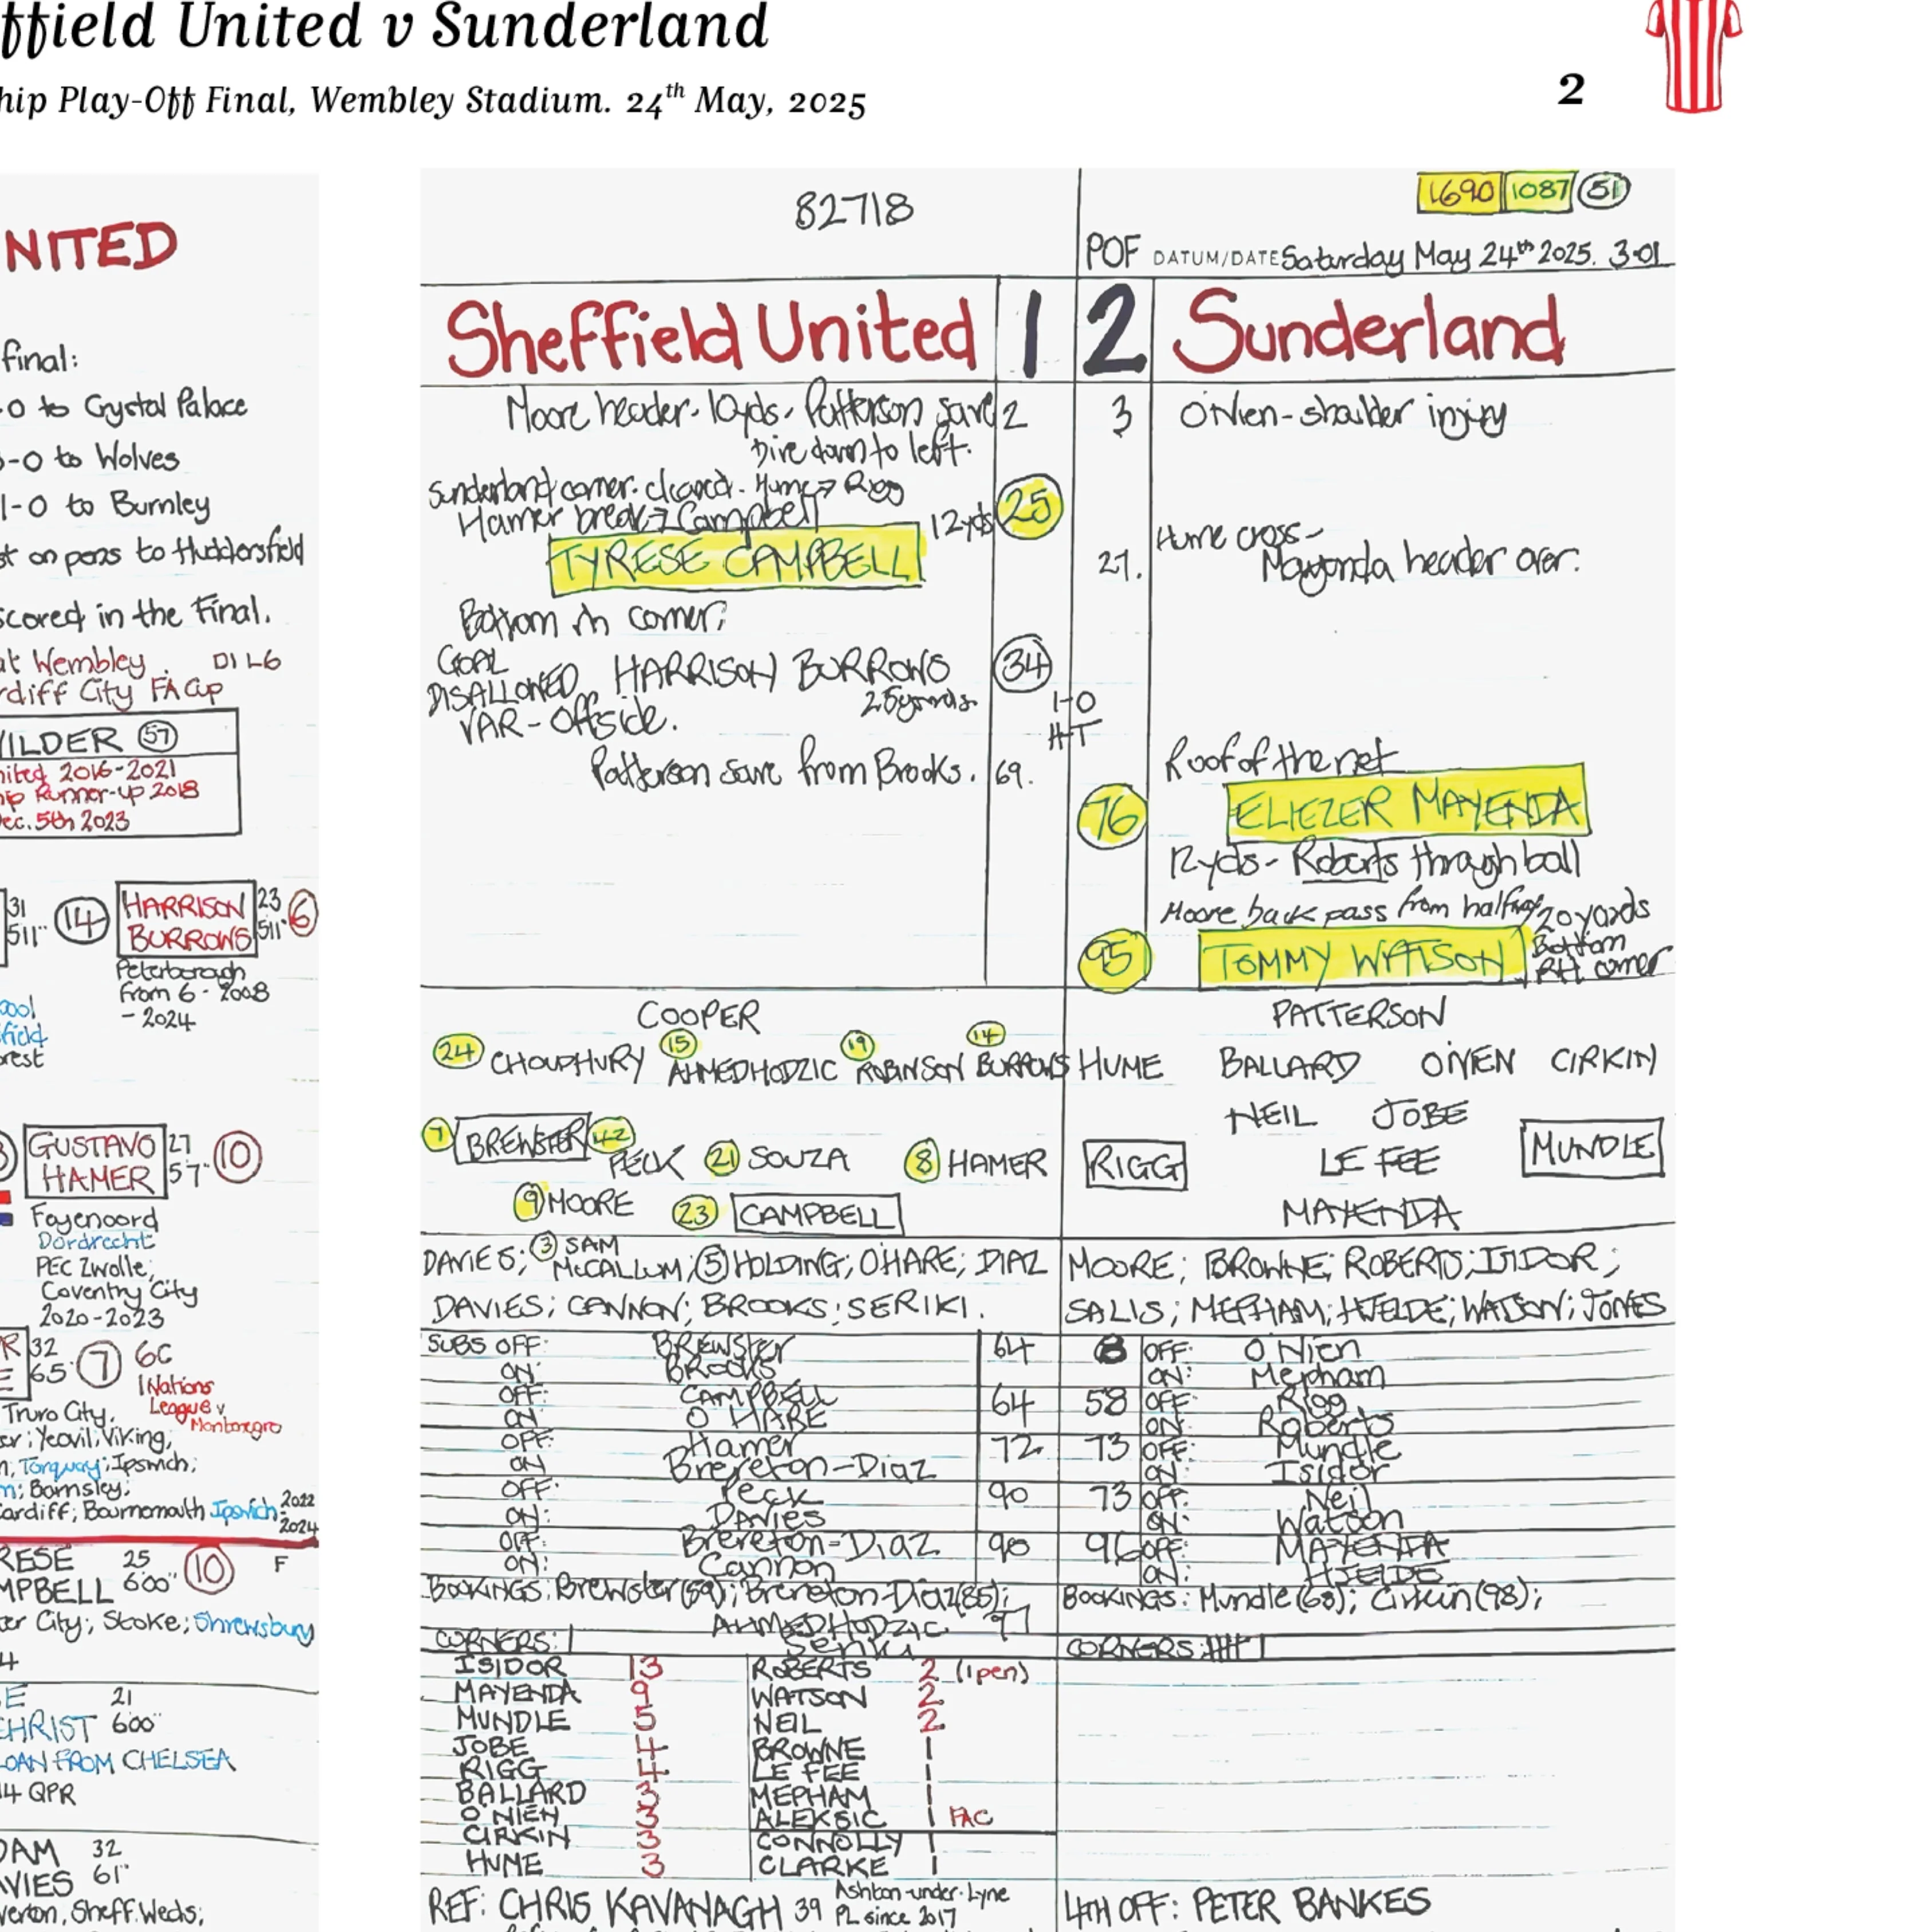 ffield United v Sunderland
hip Play-Off Final, Wembley Stadium. 24th May, 2025
2
NITED
final:
-0 to Crystal Palace
-0 to Wolves
1-0 to Burnley
st on pens to Huddersfield
scored in the Final.
at Wembley. D1 L6
rdiff City FA Cup
VILDER 57
nited 2016-2021
hip Runner-up 2018
Dec. 5th 2023
31
511"
14
HARRISON 23 6
BURROWS 511"
Peterborough
from 6 - 2008
- 2024
pool
field
rest
GUSTAVO 27 10
HAMER 57"
Feyenoord
Dordrecht
PEC Zwolle;
Coventry City
2020-2023
R 32 7 6C
E 65" 1 Nations
League v
Montenegro
Truro City,
er; Yeovil; Viking,
n, Torquay; Ipswich;
m; Barnsley;
ardiff; Bournemouth Ipswich 2022
2024
RESE 25 10 F
MPBELL 600"
er City; Stoke; Shrewsbury
4
E 21
CHRIST 600"
LOAN FROM CHELSEA
14 QPR
DAM 32
AVIES 61"
verton, Sheff.Weds;
82718
1690 1087 51
POF DATUM/DATE Saturday May 24th 2025. 3.01
Sheffield United 1 2 Sunderland
Moore header. 10yds. Patterson save 2
Dive down to left.
3 O'Nien - shoulder injury
Sunderland corner. cleared. Hume → Rigg
Hamer break → Campbell 12yds 25
TYRESE CAMPBELL
Bottom rh corner.
27. Hume cross -
Mayenda header over.
GOAL
DISALLOWED HARRISON BURROWS 34
25 yards.
VAR - offside.
1-0
HT
Patterson save from Brooks. 69.
Roof of the net
76 ELIEZER MAYENDA
12yds - Roberts through ball
Moore back pass from halfway 20 yards
95 TOMMY WATSON Bottom
RH corner
COOPER
24 CHOUDHURY 15 AHMEDHODZIC 19 ROBINSON 14 BURROWS
7 BREWSTER 42 PECK 21 SOUZA 8 HAMER
9 MOORE 23 CAMPBELL
PATTERSON
HUME BALLARD O'NIEN CIRKIN
NEIL JOBE
RIGG LE FEE MUNDLE
MAYENDA
DAVIES; 3 SAM McCALLUM; 5 HOLDING; O'HARE; DIAZ
DAVIES; CANNON; BROOKS; SERIKI.
MOORE; BROWNE; ROBERTS; ISIDOR;
SALIS; MEPHAM; HJELDE; WATSON; JONES
SUBS OFF: BREWSTER 64
ON: BROOKS
OFF: CAMPBELL 64
ON O'HARE
OFF: Hamer 72
ON Brereton-Diaz
OFF: Peck 90
ON: Davies
OFF: Brereton-Diaz 90
ON: Cannon
8 OFF: O Nien
ON: Mepham
58 OFF: Rigg
ON: Roberts
73 OFF: Mundle
ON: Isidor
73 OFF: Neil
ON: Watson
96 OFF: MAYENDA
ON: HJELDE
BOOKINGS: Brewster(59); Brereton-Diaz(85);
AHMEDHODZIC 97
Seriki
BOOKINGS: Mundle(63); Cirkin(98);
CORNERS: 1
CORNERS:
ISIDOR 13 ROBERTS 2 (1 pen)
MAYENDA 9 WATSON 2
MUNDLE 5 NEIL 2
JOBE 4 BROWNE 1
RIGG 4 LE FEE 1
BALLARD 3 MEPHAM 1
O'NIEN 3 ALEKSIC 1 FAC
CIRKIN 3 CONNOLLY 1
HUME 3 CLARKE 1
REF: CHRIS KAVANAGH 39 Ashton-under-Lyne
PL since 2017
4TH OFF: PETER BANKES